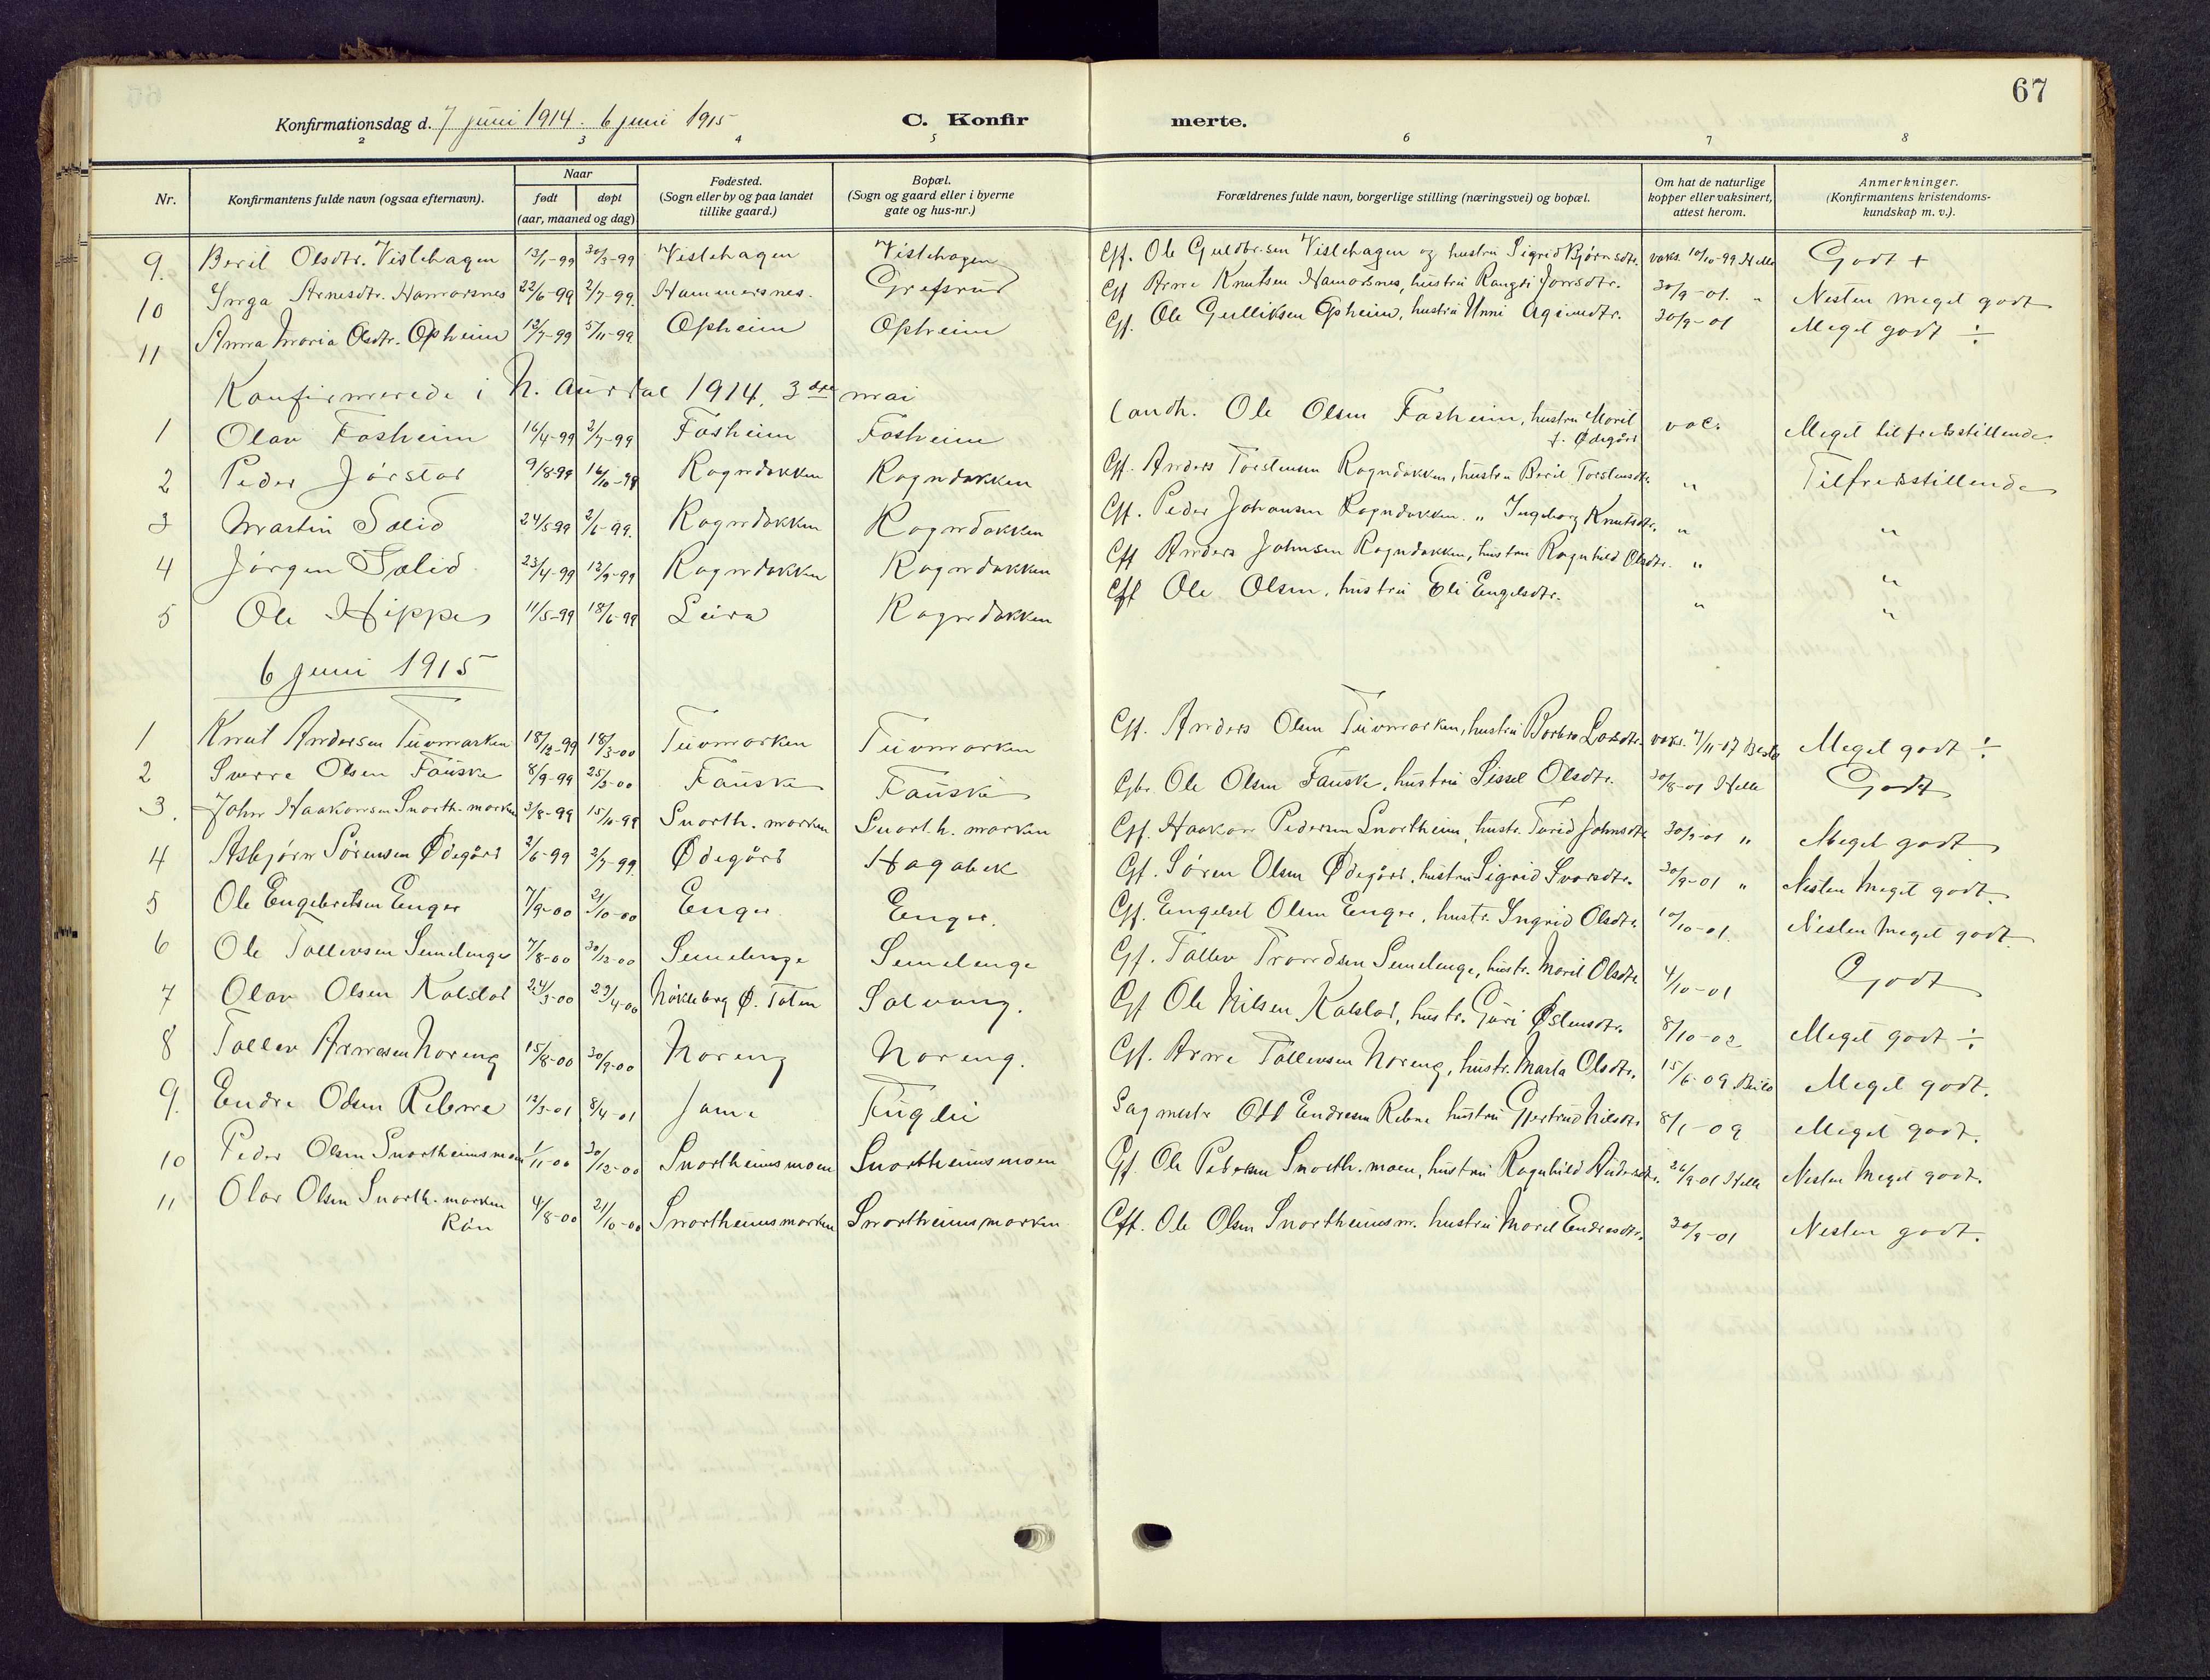 67
Konfirmationsdag d. 7 juni 1914. 6 juni 1915 C. Konfirmerte.
2 3 4 5 6 7 8
Nr. Konfirmantens fulde navn (ogsaa efternavn). Naar født døpt (aar, maaned og dag) Fødested. (Sogn eller by og paa landet tillike gaard.) Bopæl. (Sogn og gaard eller i byerne gate og hus-nr.) Forældrenes fulde navn, borgerlige stilling (næringsvei) og bopæl. Om hat de naturlige kopper eller vaksinert, attest herom. Anmerkninger. (Konfirmantens kristendoms-kundskap m. v.).
9. Beril Olsdtr. Vistehagen 13/1-99 30/3-99 Vistehagen Vistehagen Gf. Ole Guldbr.sen Vistehagen og hustru Sigrid Bjørnsdtr. vaks. 10/10-99 Helle Godt +
10 Inga Arnesdtr. Hamarsnes 22/6-99 2/7-99. Hammersnes. Grefsrud Gf Arne Knutsen Hamarsnes, hustru Rangdi Jonsdtr. 30/9-01. " Nesten meget godt
11 Anna Maria Olsdtr. Opheim 12/7-99 5/11-99 Opheim Opheim Gf. Ole Gulliksen Opheim, hustru Unni 30/9-01 Meget godt ÷
Konfirmerede i N. Aurdal 1914, 3dje mai
1 Olav Fosheim 16/4-99 2/7-99 Fosheim Fosheim Landh. Ole Olsen Fosheim, hustru Marit f. Ødegård vac. Meget tilfredsstillende
2 Peder Jørstad 9/8-99 16/10-99 Rogndokken Rogndokken Gf. Anders Torstensen Rogndokken, hustru Berit Torstensdtr. " Tilfredsstillende
3 Martin Sælid 24/5-99 2/6-99. Rogndokken Rogndokken Gf. Peder Johansen Rogndokken. " Ingeborg Knutsdtr. " "
4 Jørgen Sælid 23/4-99 12/9-99 Rogndokken Rogndokken Gf Anders Johnsen Rogndokken, hustru Ragnhild Olsdtr. " "
5 Ole Hippe 11/5-99 18/6-99 Leira Rogndokken Gf Ole Olsen, hustru Eli Engelsdtr. " "
6 juni 1915
1 Knut Andersen Tuvmarken 18/12-99 18/3-00 Tuvmarken Tuvmarken Gf. Anders Olsen Tuvmarken, hustru Barbro Larsdtr. vaks. 7/11-07 Meget godt ÷
2 Sverre Olsen Fauske 8/9-99 25/3-00 Fauske Fauske Gbr. Ole Olsen Fauske, hustru Sissel Olsdtr. 30/8-01 Helle Godt
3. John Haakonsen Snorth. marken 3/8-99 15/10-99 Snorth. marken Snorth. marken Gf. Haakon Pedersen Snortheim, hustr. Turid Johnsdtr 30/9-01 " Meget godt
4 Asbjørn Sørensen Ødegård 2/6-99 2/7-99. Ødegård Hagabek Gf. Søren Olsen Ødegård, hustru Sigrid 30/9-01 " Nesten meget godt.
5 Ole Engebretsen Enger 7/9-00 21/10-00 Enger Enger. Gf. Engebret Olsen Enger, hustr. Ingrid Olsdtr. 10/10-01. Nesten meget godt.
6 Ole Tollevsen Semelenge 7/8-00 30/12-00 Semelenge Semelenge Gf. Tollev Trondsen Semelenge, hustr. Marit Olsdtr. 4/10-01 Godt
7 Olav Olsen Kalstad 24/3-00 29/4-00 Nøkleberg Ø. Toten Solvang. Gf Ole Nilsen Kalstad, hustr. Guri Østensdtr. 8/10-02 Meget godt ÷
8 Tollev Arnesen Noreng 15/8-00 30/9-00 Noreng Noreng. Gf. Arne Tollevsen Noreng, hustr. Marta Olsdtr. 15/6-09 Meget godt.
9. Endre Odsen Rebne 12/3-01 8/4-01 Jome Fuglei Sagmestr Odd Endresen Rebne hustru Gjertrud Nilsdtr 8/1-09 Meget godt.
10 Peder Olsen Snortheimsmoen 1/11-00 30/12-00 Snortheimsmoen Snortheimsmoen Gf. Ole Pedersen Snorth.moen, hustru Ragnhild Andersdtr. 26/9-01 Helle Nesten meget godt.
11 Olav Olsen Snorth. marken 4/8-00 21/10-00 Snortheimsmarken Snortheimsmarken Gf. Ole Olsen Snortheimsm. hustru Marit Endresdtr. 30/9-01 Nesten godt.
Røn